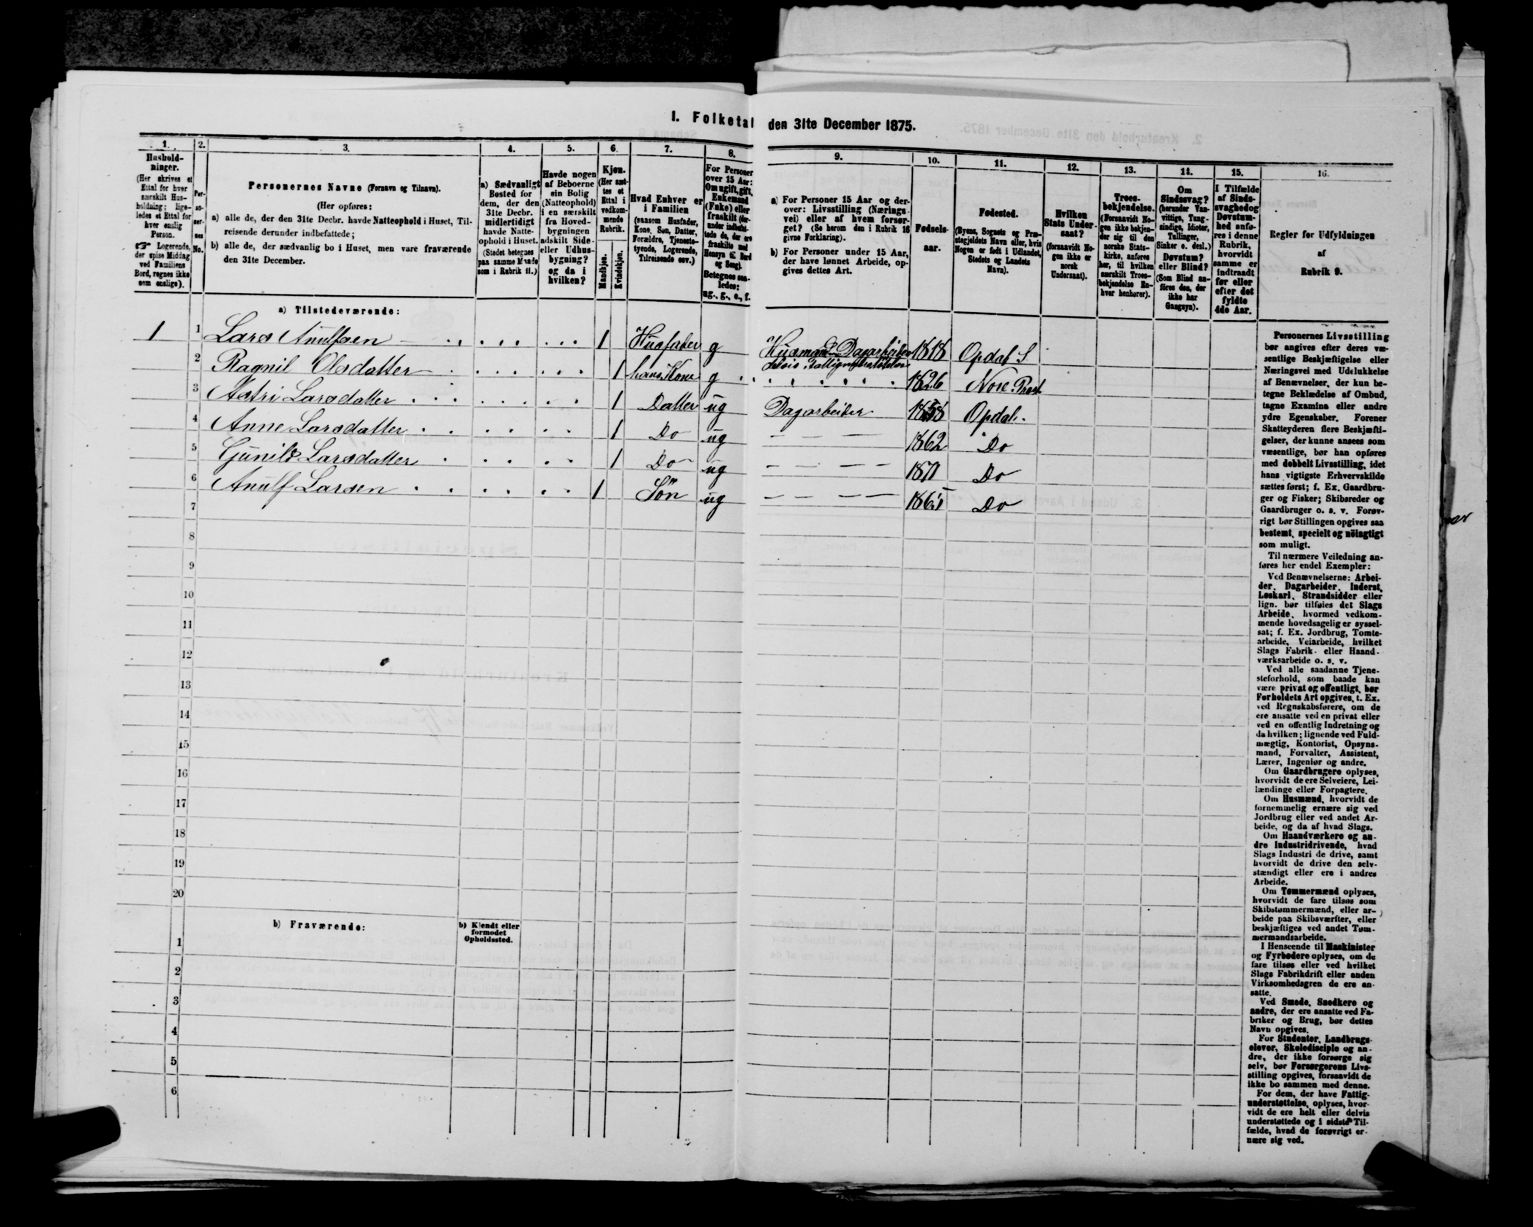 I. Folketal den 31te December 1875.
1. 2. 3. 4. 5. 6. 7. 8. 9. 10. 11. 12. 13. 14. 15. 16.
Hushold-
ninger.
(Her skrives et
Ettal for hver
særskilt Hus-
holdning; lige-
ledes et Ettal for
hver enslig
Person.
☞ Logerende,
der spise Middag
ved Familiens
Bord, regnes ikke
som enslige).
Per-
soner-
nes
No.
Personernes Navne (Fornavn og Tilnavn).
(Her opføres:
a) alle de, der den 31te Decbr. havde Natteophold i Huset, Til-
reisende derunder indbefattede;
b) alle de, der sædvanlig bo i Huset, men vare fraværende
den 31te December.
a) Sædvanligt
Bosted for
dem, der den
31te Decbr.
midlertidigt
havde Natte-
ophold i Huset.
(Stedet betegnes
paa samme Maade
som i Rubrik 11.)
Havde nogen
af Beboerne
sin Bolig
(Natteophold)
i en særskilt
fra Hoved-
bygningen
adskilt Side-
eller Udhus-
bygning?
og da i
hvilken?
Kjøn.
(Her sæt-
tes et
Ettal i
vedkom-
mende
Rubrik.
Mandkjøn.
Kvindekjøn.
Hvad Enhver er
i Familien
(saasom Husfader,
Kone, Søn, Datter,
Forældre, Tjeneste-
tyende, Logerende,
Tilreisende osv.)
For Personer
over 15 Aar:
Om ugift, gift,
Enkemand
(Enke) eller
fraskilt
a) For Personer 15 Aar og der-
over: Livsstilling (Nærings-
vei) eller af hvem forsør-
get? (Se herom den i Rubrik 16
givne Forklaring).
b) For Personer under 15 Aar,
der have lønnet Arbeide, op-
gives dettes Art.
Fødsels-
aar.
Fødested.
(Byens, Sognets og Præ-
stegjeldets Navn eller, hvis
Nogen er født i Udlandet,
Stedets og Landets
Navn).
Hvilken
Stats Under-
saat?
(forsaavidt No-
gen ikke er
norsk
Undersaat).
Troes-
bekjendelse.
(Forsaavidt No-
gen ikke bekjen-
der sig til den
norske Stats-
kirke, anføres
her, til hvilken
særskilt Troes-
bekjendelse En-
hver henhører).
Om
Sindssvag?
(herunder Van-
vittige, Tung-
sindige, Idioter,
Tullinger,
Sinker o. desl.)
Døvstum?
eller Blind?
(Som Blind an-
føres den, der
ikke har
Gangsyn).
I Tilfælde
af Sinds-
svaghed og
Døvstum-
hed anfø-
res i denne
Rubrik,
hvorvidt
samme er
indtraadt
før eller
efter det
fyldte
4de Aar.
Regler for Udfyldningen
af
Rubrik 9.
a) Tilstedeværende:
1 1 Lars Anulfsen 1 Husfader g Husmand & Dagarbeider 1818 Opdal S
2 Ragnil Olsdatter 1 hans Kone g 1826 Nore Præst
3 Astri Larsdatter 1 Datter ug Dagarbeider 1858 Opdal
4 Anne Larsdatter 1 Do ug 1862 Do
5 Gunild Larsdatter 1 Do ug 1871 Do
6 Anulf Larsen 1 Søn ug 1865 Do
7
8
9
10
11
12
13
14
15
16
17
18
19
20
b) Fraværende:
b) Kjendt eller
formodet
Opholdssted.
1
2
3
4
5
6
Personernes Livsstilling
bør angives efter deres væ-
sentlige Beskjæftigelse eller
Næringsvei med Udelukkelse
af Benævnelser, der kun be-
tegne Beklædelse af Ombud,
tagne Examina eller andre
ydre Egenskaber. Forener
Skatteyderen flere Beskjæfti-
gelser, der kunne ansees som
væsentlige, bør han opføres
med dobbelt Livsstilling, idet
hans vigtigste Erhvervskilde
sættes først; f. Ex. Gaardbru-
ger og Fisker; Skibsreder og
Gaardbruger o. s. v. Forøv-
rigt bør Stillingen opgives saa
bestemt, specielt og nöiagtigt
som muligt.
Til nærmere Veiledning an-
føres her endel Exempler:
Ved Benævnelserne: Arbei-
der, Dagarbeider, Inderst,
Løskarl, Strandsidder eller
lign. bør tilføies det Slags
Arbeide, hvormed vedkom-
mende hovedsagelig er syssel-
sat; f. Ex. Jordbrug, Tomte-
arbeide, Veiarbeide, hvilket
Slags Fabrik- eller Haand-
værksarbeide o. s. v.
Ved alle saadanne Tjene-
steforhold, som baade kan
være privat og offentligt, bør
Forholdets Art opgives, t. Ex.
ved Regnskabsførere, om de
ere ansatte ved en privat eller
ved en offentlig Indretning og
da hvilken; lignende ved Fuld-
mægtig, Kontorist, Opsyns-
mand, Forvalter, Assistent,
Lærer, Ingeniør og andre.
Om Gaardbrugere oplyses,
hvorvidt de ere Selveiere, Lei-
lændinge eller Forpagtere.
Om Husmænd, hvorvidt de
fornemmelig ernære sig ved
Jordbrug eller ved andet Ar-
beide, og da af hvad Slags.
Om Haandværkere og an-
dre Industridrivende, hvad
Slags Industri de drive, samt
hvorvidt de drive den selv-
stændigt eller ere i andres
Arbeide.
Om Tømmermænd oplyses,
hvorvidt de fare tilsøs som
Skibstømmermænd, eller ar-
beide paa Skibsværfter, eller
beskjæftiges ved andet Tøm-
mermandsarbeide.
I Henseende til Maskinister
og Fyrbødere oplyses, om de
fare tilsøs eller ved hvilket
Slags Fabrikdrift eller anden
Virksomhedsgren de ere an-
satte.
Ved Smede, Snedkere og
andre, der ere ansatte ved Fa-
briker og Brug, bør dettes
Navn opgives.
For Studenter, Landbrugs-
elever, Skoledisciple og an-
dre, der ikke forsørge sig
selv, bør Forsørgerens Livs-
stilling opgives, forsaavidt de
ikke bo sammen med denne.
For dem, der have Fattig-
understøttelse, oplyses, hvor-
vidt de ere helt eller delvis
understøttede og i sidste Til-
fælde, hvad de forøvrigt er-
nære sig ved.